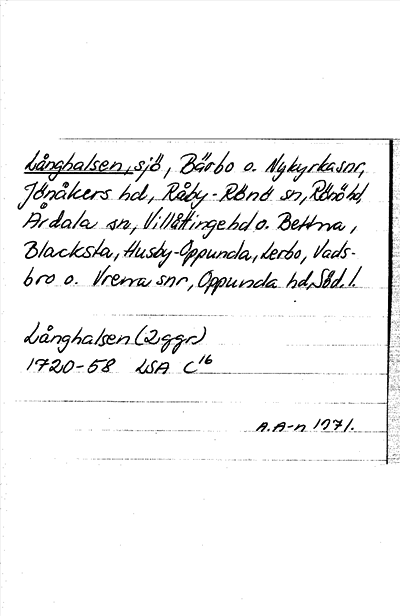 Långhalsen, sjö, Bärbo o. Nykyrka snr,
Jönåkers hd, Råby-Rönö sn, Rönö hd,
Årdala sn, Villåttinge hd o. Bettna,
Blacksta, Husby-Oppunda, Lerbo, Vads-
bro o. Vrena snr, Oppunda hd, Söd. l.
Långhalsen (2 ggr)
1720-58 LSA C16
A.A-n 1971.